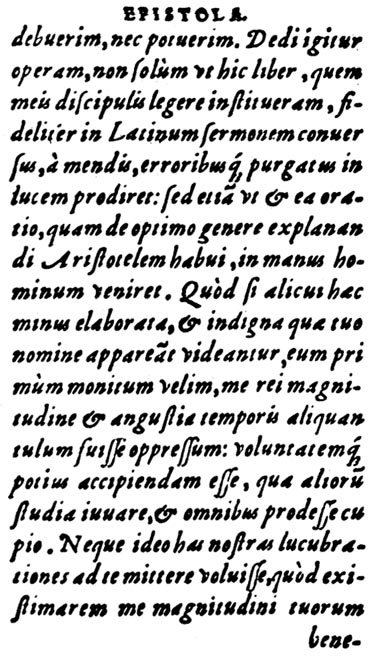 EPISTOLA.
debuerim, nec potuerim. Dedi igitur
operam, non ſolùm vt hic liber, quem
meis diſcipulis legere inſtitueram, fi-
deliter in Latinum ſermonem conuer
ſus, à mendis, erroribusq́; purgatus in
lucem prodiret: ſed etiã vt & ea ora-
tio, quam de optimo genere explanan
di Ariſtotelem habui, in manus ho-
minum veniret. Quòd ſi alicui hæc
minus elaborata, & indigna quæ tuo
nomine appareãt videantur, eum pri
mùm monitum velim, me rei magni-
tudine & anguſtia temporis aliquan
tulum fuiſſe oppreſſum: voluntatemq́;
potius accipiendam eſſe, qua aliorũ
ſtudia iuuare, & omnibus prodeſſe cu
pio. Neque ideo has noſtras lucubra-
tiones ad te mittere voluiſſe, quòd exi-
ſtimarem me magnitudini tuorum
bene-